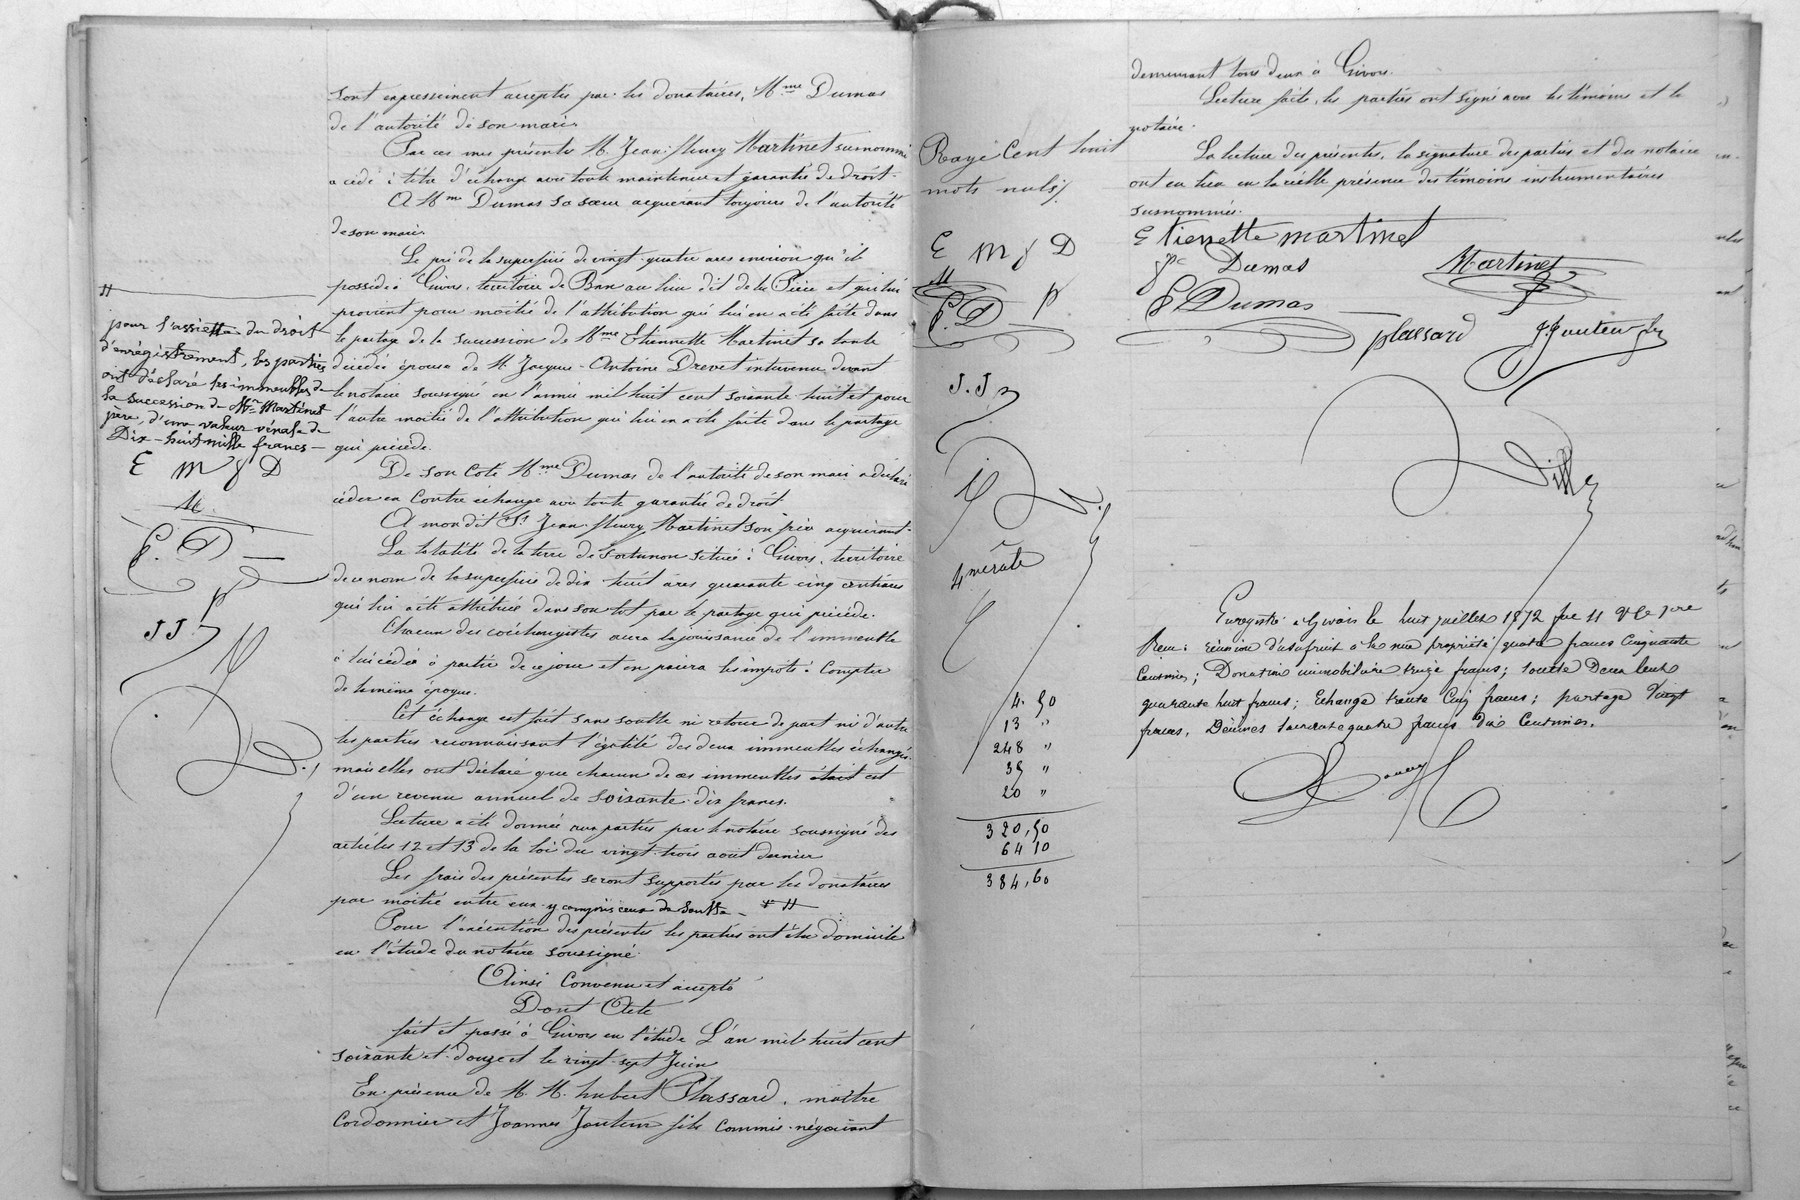 sont expressement acceptés par les donataires, Mme Dumas
de l'autorité de son mari.
Par ces mes présentes M. Jean-fleury Martinet surnommé
a cédé à titre d'échange avec toute maintenue et garantie de droit.
A Mme Dumas sa sœur acquérant toujours de l'autorité
de son mari.
Le pré de la superficie de vingt quatre ares environ qu'il
possède à Givors, territoire de Bans au lieu dit de la Pièce et qui lui
provient pour moitié de l'attribution qui lui en a été faite dans
le partage de la succession de Mme Etiennette Martinet sa tante
décédée épouse de M. Jacques-Antoine Drevet intervenu devant
le notaire soussigné en l'année mil huit cent soixante huit et pour
l'autre moitié de l'attribution qui lui en a été faite dans le partage
qui précède.
De son coté Mme Dumas de l'autorité de son mari a déclaré
céder en Contre échange avec toute garantie de droit
A mon dit Sr Jean-fleury Martinet son frère acquérant.
La totalité de la terre de Fortunon située à Givors, territoire
de ce nom de la superficie de dix huit ares quarante cinq centiares
qui lui a été attribuée dans son lot par le partage qui précède.
Chacun des coéchangistes aura la jouissance de l'immeuble
à lui cédé à partir de ce jour et en paiera les impots à Compter
de la même époque.
Cet échange est fait sans soulte ni retour de part ni d'autre
les parties reconnaissant l'égalité des deux immeubles échangés.
mais elles ont déclaré que chacun de ces immeubles était est
d'un revenu annuel de soixante-dix francs.
Lecture a été donnée aux parties par le notaire soussigné des
articles 12 et 13 de la loi du vingt-trois aout dernier
Les frais des présentes seront supportés par les donataires
par moitié entre eux y compris ceux de soulte - + H
Pour l'exécution des présentes les parties ont élu domicile
en l'étude du notaire soussigné.
Ainsi Convenu et accepté
Dont Acte
fait et passé à Givors en l'étude L'an mil huit cent
soixante et douze et le vingt-sept Juin
En présence de M. M. hubert Plassard, maître
Cordonnier et Joannes Jouteur fils Commis-négociant
H
pour l'assiette du droit
d'enregistrement, les parties
ont déclaré les immeubles de
la succession de Mr Martinet
père, d'une valeur vénale de
Dix-huit mille francs -
E m J D
M
E. D
p
J J
D.
demeurant tous deux à Givors.
Lecture faite, les parties ont signé avec les témoins et le
notaire.
La lecture des présentes, la signature des parties et du notaire
ont eu lieu en la réelle présence des témoins instrumentaires
susnommés.
Etiennette martinet
Dumas
Martinet
E Dumas
plassard
J Jouteur fils
Rayé Cent huit
mots nuls
E m J D
M
E. D
p
J. J
4.50
13 "
248 "
35 "
20 "
320,50
64 10
384,60
Enregistré à Givors le huit juillet 1872 fo 11 Vo Ce 1re
Reçu: réunion d'usufruit à la nue propriété quatre francs Cinquante
Centimes; Donation immobilière treize francs; soulte Deux Cent
quarante huit francs; Echange trente Cinq francs; partage Vingt
francs. Décimes soixante quatre francs Dix Centimes.